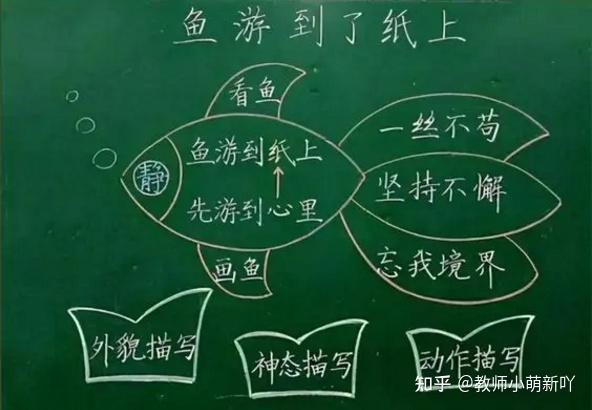 鱼游到了纸上
看鱼
静
鱼游到纸上
先游到心里
画鱼
一丝不苟
坚持不懈
忘我境界
外貌描写
神态描写
动作描写
知乎 @教师小萌新吖